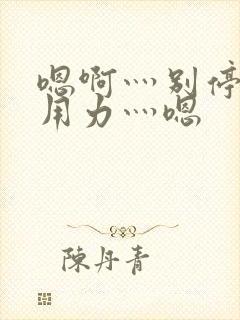 嗯啊┈别停
用力┈嗯
陳丹青